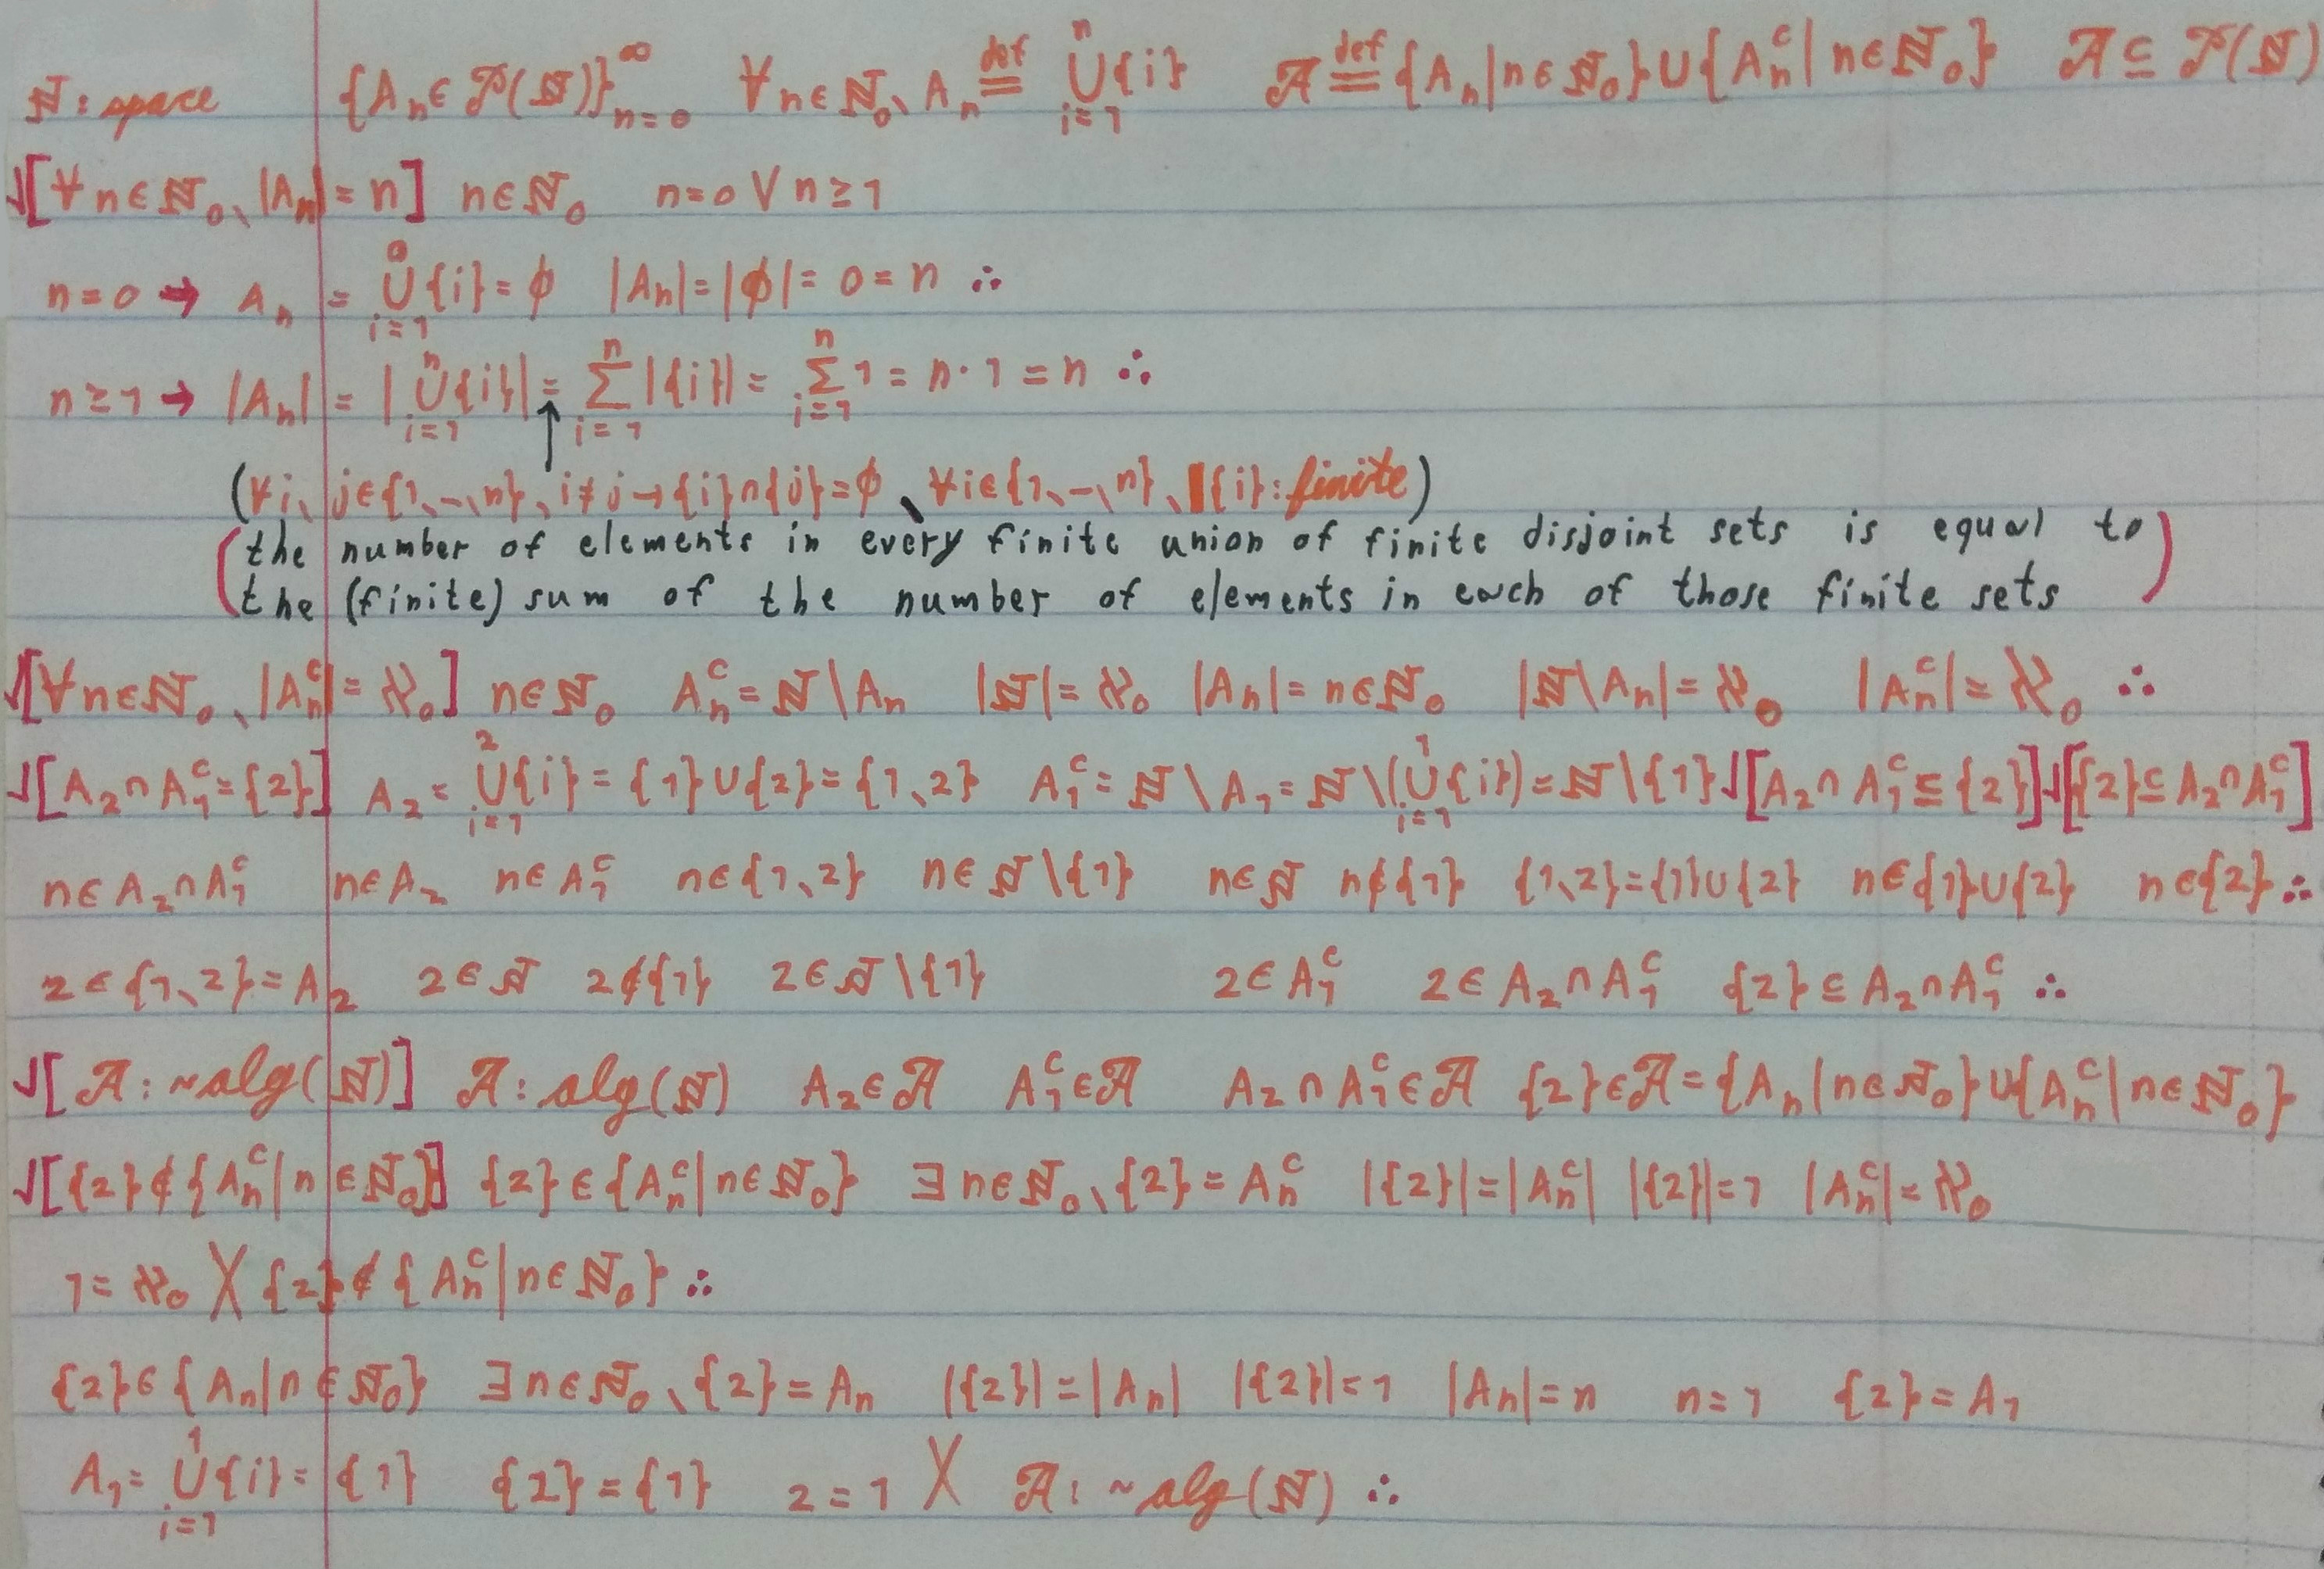 ℕ: space {Aₙ ∈ 𝒫(ℕ)}ₙ₌₀^∞ ∀n∈ℕ₀、Aₙ ≝ ⋃ᵢ₌₁ⁿ{i} 𝒜 ≝ {Aₙ|n∈ℕ₀}∪{Aₙᶜ|n∈ℕ₀} 𝒜 ⊆ 𝒫(ℕ)
√[∀n∈ℕ₀、|Aₙ|=n] n∈ℕ₀ n=0 ∨ n≥1
n=0 → Aₙ = ⋃ᵢ₌₁⁰{i} = ϕ |Aₙ|=|ϕ|=0=n ∴
n≥1 → |Aₙ| = |⋃ᵢ₌₁ⁿ{i}| = ∑ᵢ₌₁ⁿ|{i}| = ∑ᵢ₌₁ⁿ1 = n·1 = n ∴
↑
(∀i、j∈{1、…、n}、i≠j→{i}∩{j}=ϕ、∀i∈{1、…、n}、{i}: finite)
(the number of elements in every finite union of finite disjoint sets is equal to
the (finite) sum of the number of elements in each of those finite sets)
√[∀n∈ℕ₀、|Aₙᶜ|=ℵ₀] n∈ℕ₀ Aₙᶜ=ℕ\Aₙ |ℕ|=ℵ₀ |Aₙ|=n∈ℕ₀ |ℕ\Aₙ|=ℵ₀ |Aₙᶜ|=ℵ₀ ∴
√[A₂∩A₁ᶜ={2}] A₂=⋃ᵢ₌₁²{i}={1}∪{2}={1、2} A₁ᶜ=ℕ\A₁=ℕ\(⋃ᵢ₌₁¹{i})=ℕ\{1} √[A₂∩A₁ᶜ⊆{2}] √[{2}⊆A₂∩A₁ᶜ]
n∈A₂∩A₁ᶜ n∈A₂ n∈A₁ᶜ n∈{1、2} n∈ℕ\{1} n∈ℕ n∉{1} {1、2}={1}∪{2} n∈{1}∪{2} n∈{2} ∴
2∈{1、2}=A₂ 2∈ℕ 2∉{1} 2∈ℕ\{1} 2∈A₁ᶜ 2∈A₂∩A₁ᶜ {2}⊆A₂∩A₁ᶜ ∴
√[𝒜: ~alg(ℕ)] 𝒜: alg(ℕ) A₂∈𝒜 A₁ᶜ∈𝒜 A₂∩A₁ᶜ∈𝒜 {2}∈𝒜={Aₙ|n∈ℕ₀}∪{Aₙᶜ|n∈ℕ₀}
√[{2}∉{Aₙᶜ|n∈ℕ₀}] {2}∈{Aₙᶜ|n∈ℕ₀} ∃n∈ℕ₀、{2}=Aₙᶜ |{2}|=|Aₙᶜ| |{2}|=1 |Aₙᶜ|=ℵ₀
1=ℵ₀ X {2}∉{Aₙᶜ|n∈ℕ₀} ∴
{2}∈{Aₙ|n∈ℕ₀} ∃n∈ℕ₀、{2}=Aₙ |{2}|=|Aₙ| |{2}|=1 |Aₙ|=n n=1 {2}=A₁
A₁=⋃ᵢ₌₁¹{i}={1} {2}={1} 2=1 X 𝒜: ~alg(ℕ) ∴